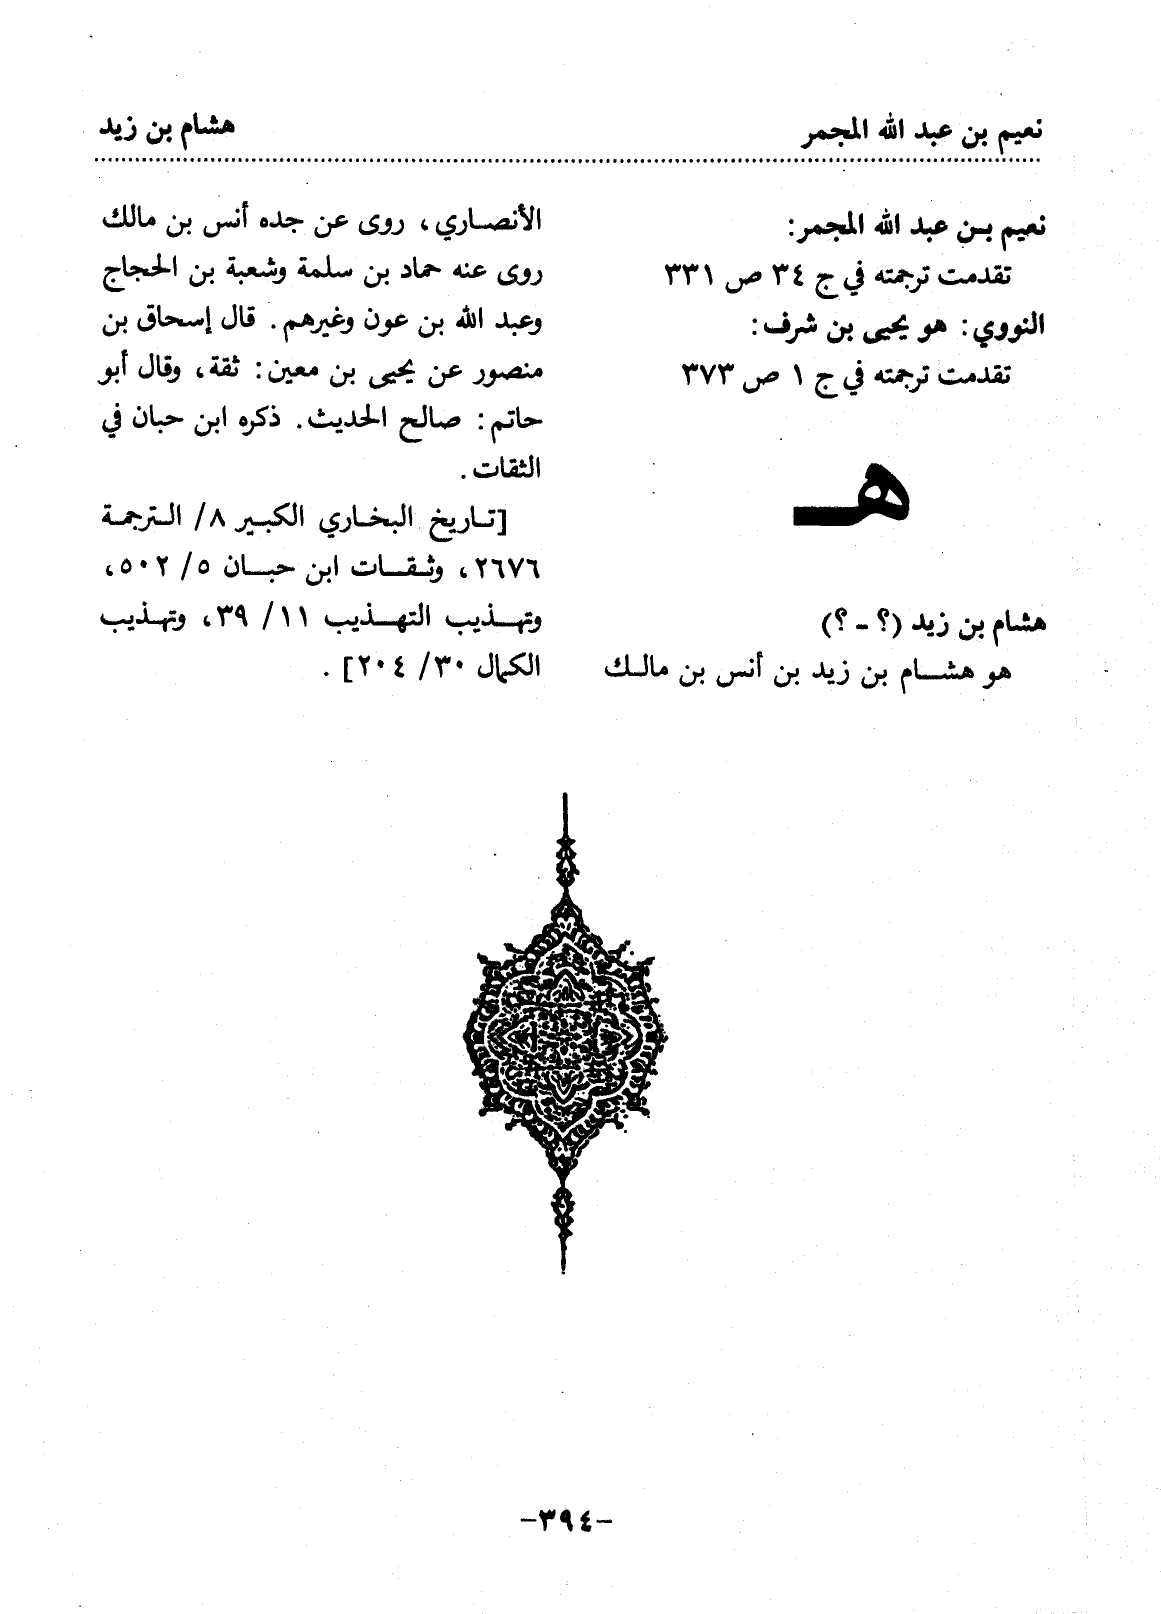 نعيم بن عبد الله المجمر
هشام بن زيد
نعيم بـن عبد الله المجمر:
تقدمت ترجمته في ج ٣٤ ص ٣٣١
النووي: هو يحيى بن شرف:
تقدمت ترجمته في ج ١ ص ٣٧٣
هـ
هشام بن زيد (؟ - ؟)
هو هشـــام بن زيد بن أنس بن مالـك
الأنصـاري، روى عن جده أنس بن مالك
روى عنه حماد بن سلمة وشعبة بن الحجاج
وعبد الله بن عون وغيرهم. قال إسحاق بن
منصور عن يحيى بن معين: ثقة، وقال أبو
حاتم: صالح الحديث. ذكره ابن حبان في
الثقات.
[تـاريخ البخـاري الكبـير ٨/ الـترجمـة
٢٦٧٦، وثـقـــات ابن حبـــان ٥/ ٥٠٢،
وتهـــذيب التهـــذيب ١١/ ٣٩، وتهـذيب
الكمال ٣٠/ ٢٠٤].
-٣٩٤-